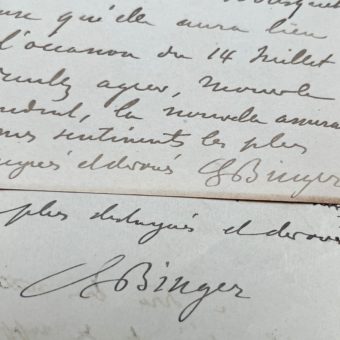 que qu'elle aura lieu
l'occasion du 14 Juillet
agréer, Monsieur
la nouvelle assura
mes sentiments les plus
distingués et dévoués LGBinger
plus distingués et dévoués
LGBinger